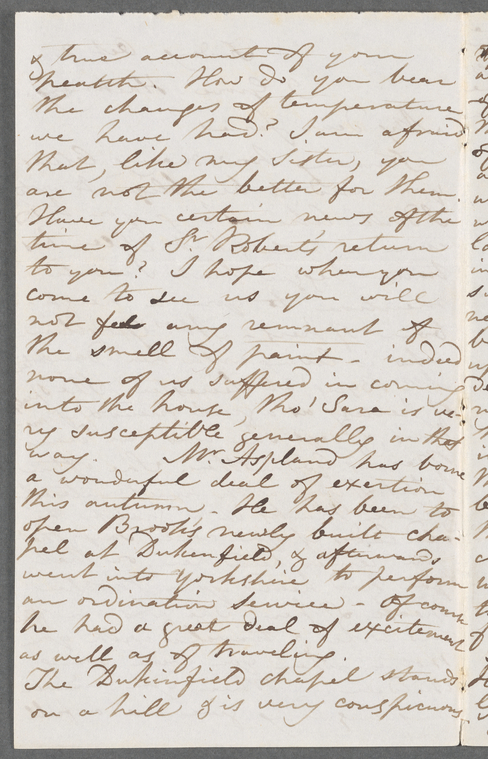 & true account of your
health. How do you bear
the changes of temperature
we have had? I am afraid
that, like my Sister, you
are not the better for them.
Have you certain news of the
time of Sr. Robert's return
to you? I hope when you
come to see us you will
not feel any remnant of
the smell of paint - indeed
none of us suffered in coming
into the house, tho' Sara is ve-
ry susceptible generally in that
way. Mr. Aspland has borne
a wonderful deal of exertion
this autumn - He has been to
open Brooks newly built cha-
pel at Dukenfield, & afterwards
went into Yorkshire to perform
an ordination service - of course
he had a great deal of excitement
as well as of traveling.
The Dukinfield chapel stands
on a hill & is very conspicuous